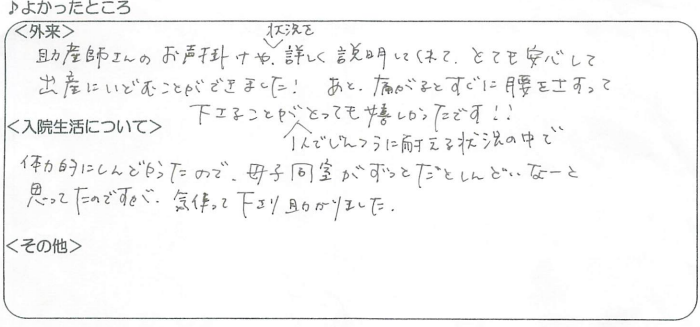 ♪よかったところ
<外来>
状況を
助産師さんのお声掛けや、詳しく説明してくれて、とても安心して
出産にいどむことができました! あと、痛がるとすぐに腰をさすって
下さることがとっても嬉しかったです!!
<入院生活について>
1人でじんつうに耐える状況の中で
体力的にしんどかったので、母子同室がずっとだとしんどいなーと
思ってたのですが、気使って下さり助かりました.
<その他>